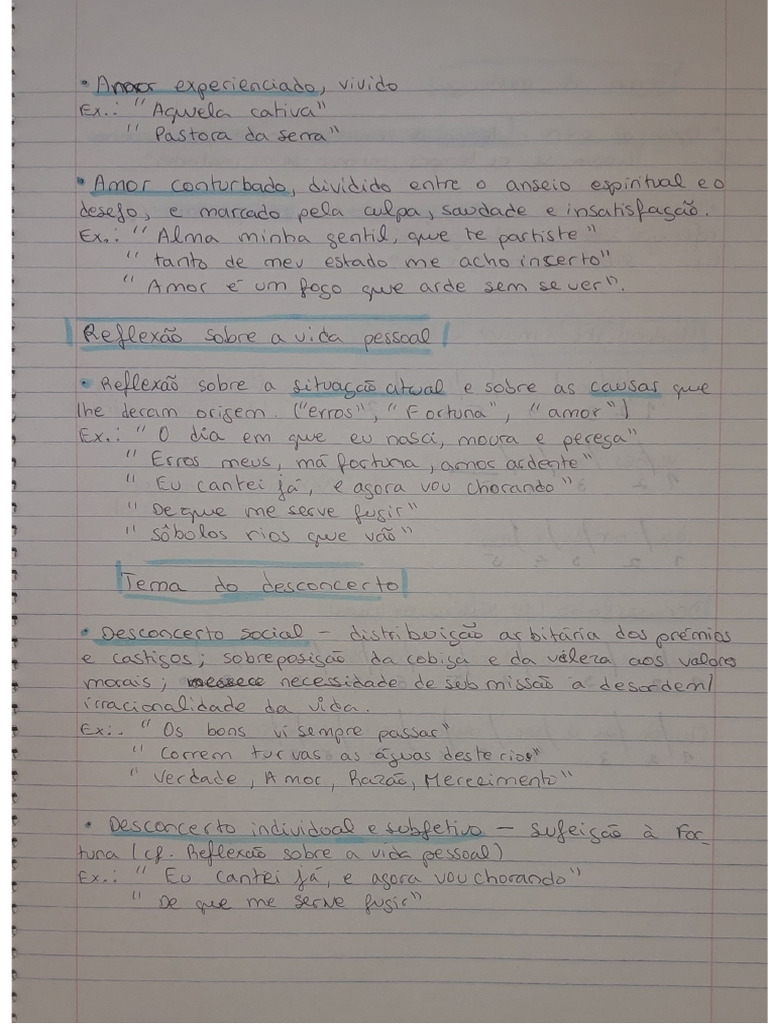 • Amor experienciado, vivido
Ex.: "Aquela cativa"
"Pastora da serra"
• Amor conturbado, dividido entre o anseio espiritual e o
desejo, e marcado pela culpa, saudade e insatisfação.
Ex.: "Alma minha gentil, que te partiste"
"tanto de meu estado me acho inserto"
"Amor é um fogo que arde sem se ver".
Reflexão sobre a vida pessoal
• Reflexão sobre a situação atual e sobre as causas que
lhe deram origem. ("erros", "Fortuna", "amor")
Ex.: "O dia em que eu nasci, moura e pereça"
"Erros meus, má fortuna, amor ardente"
"Eu cantei já, e agora vou chorando"
"De que me serve fugir"
"Sôbolos rios que vão"
Tema do desconcerto
• Desconcerto social - distribuição arbitária dos prémios
e castigos; sobreposição da cobiça e da vileza aos valores
morais; necessidade de submissão à desordem/
irracionalidade da vida.
Ex:. "Os bons vi sempre passar"
"Correm turvas as águas deste rio"
"Verdade, Amor, Razão, Merecimento"
• Desconcerto individual e subjetivo - sujeição à For_
tuna (cf. Reflexão sobre a vida pessoal)
Ex.: "Eu cantei já, e agora vou chorando"
"De que me serve fugir"